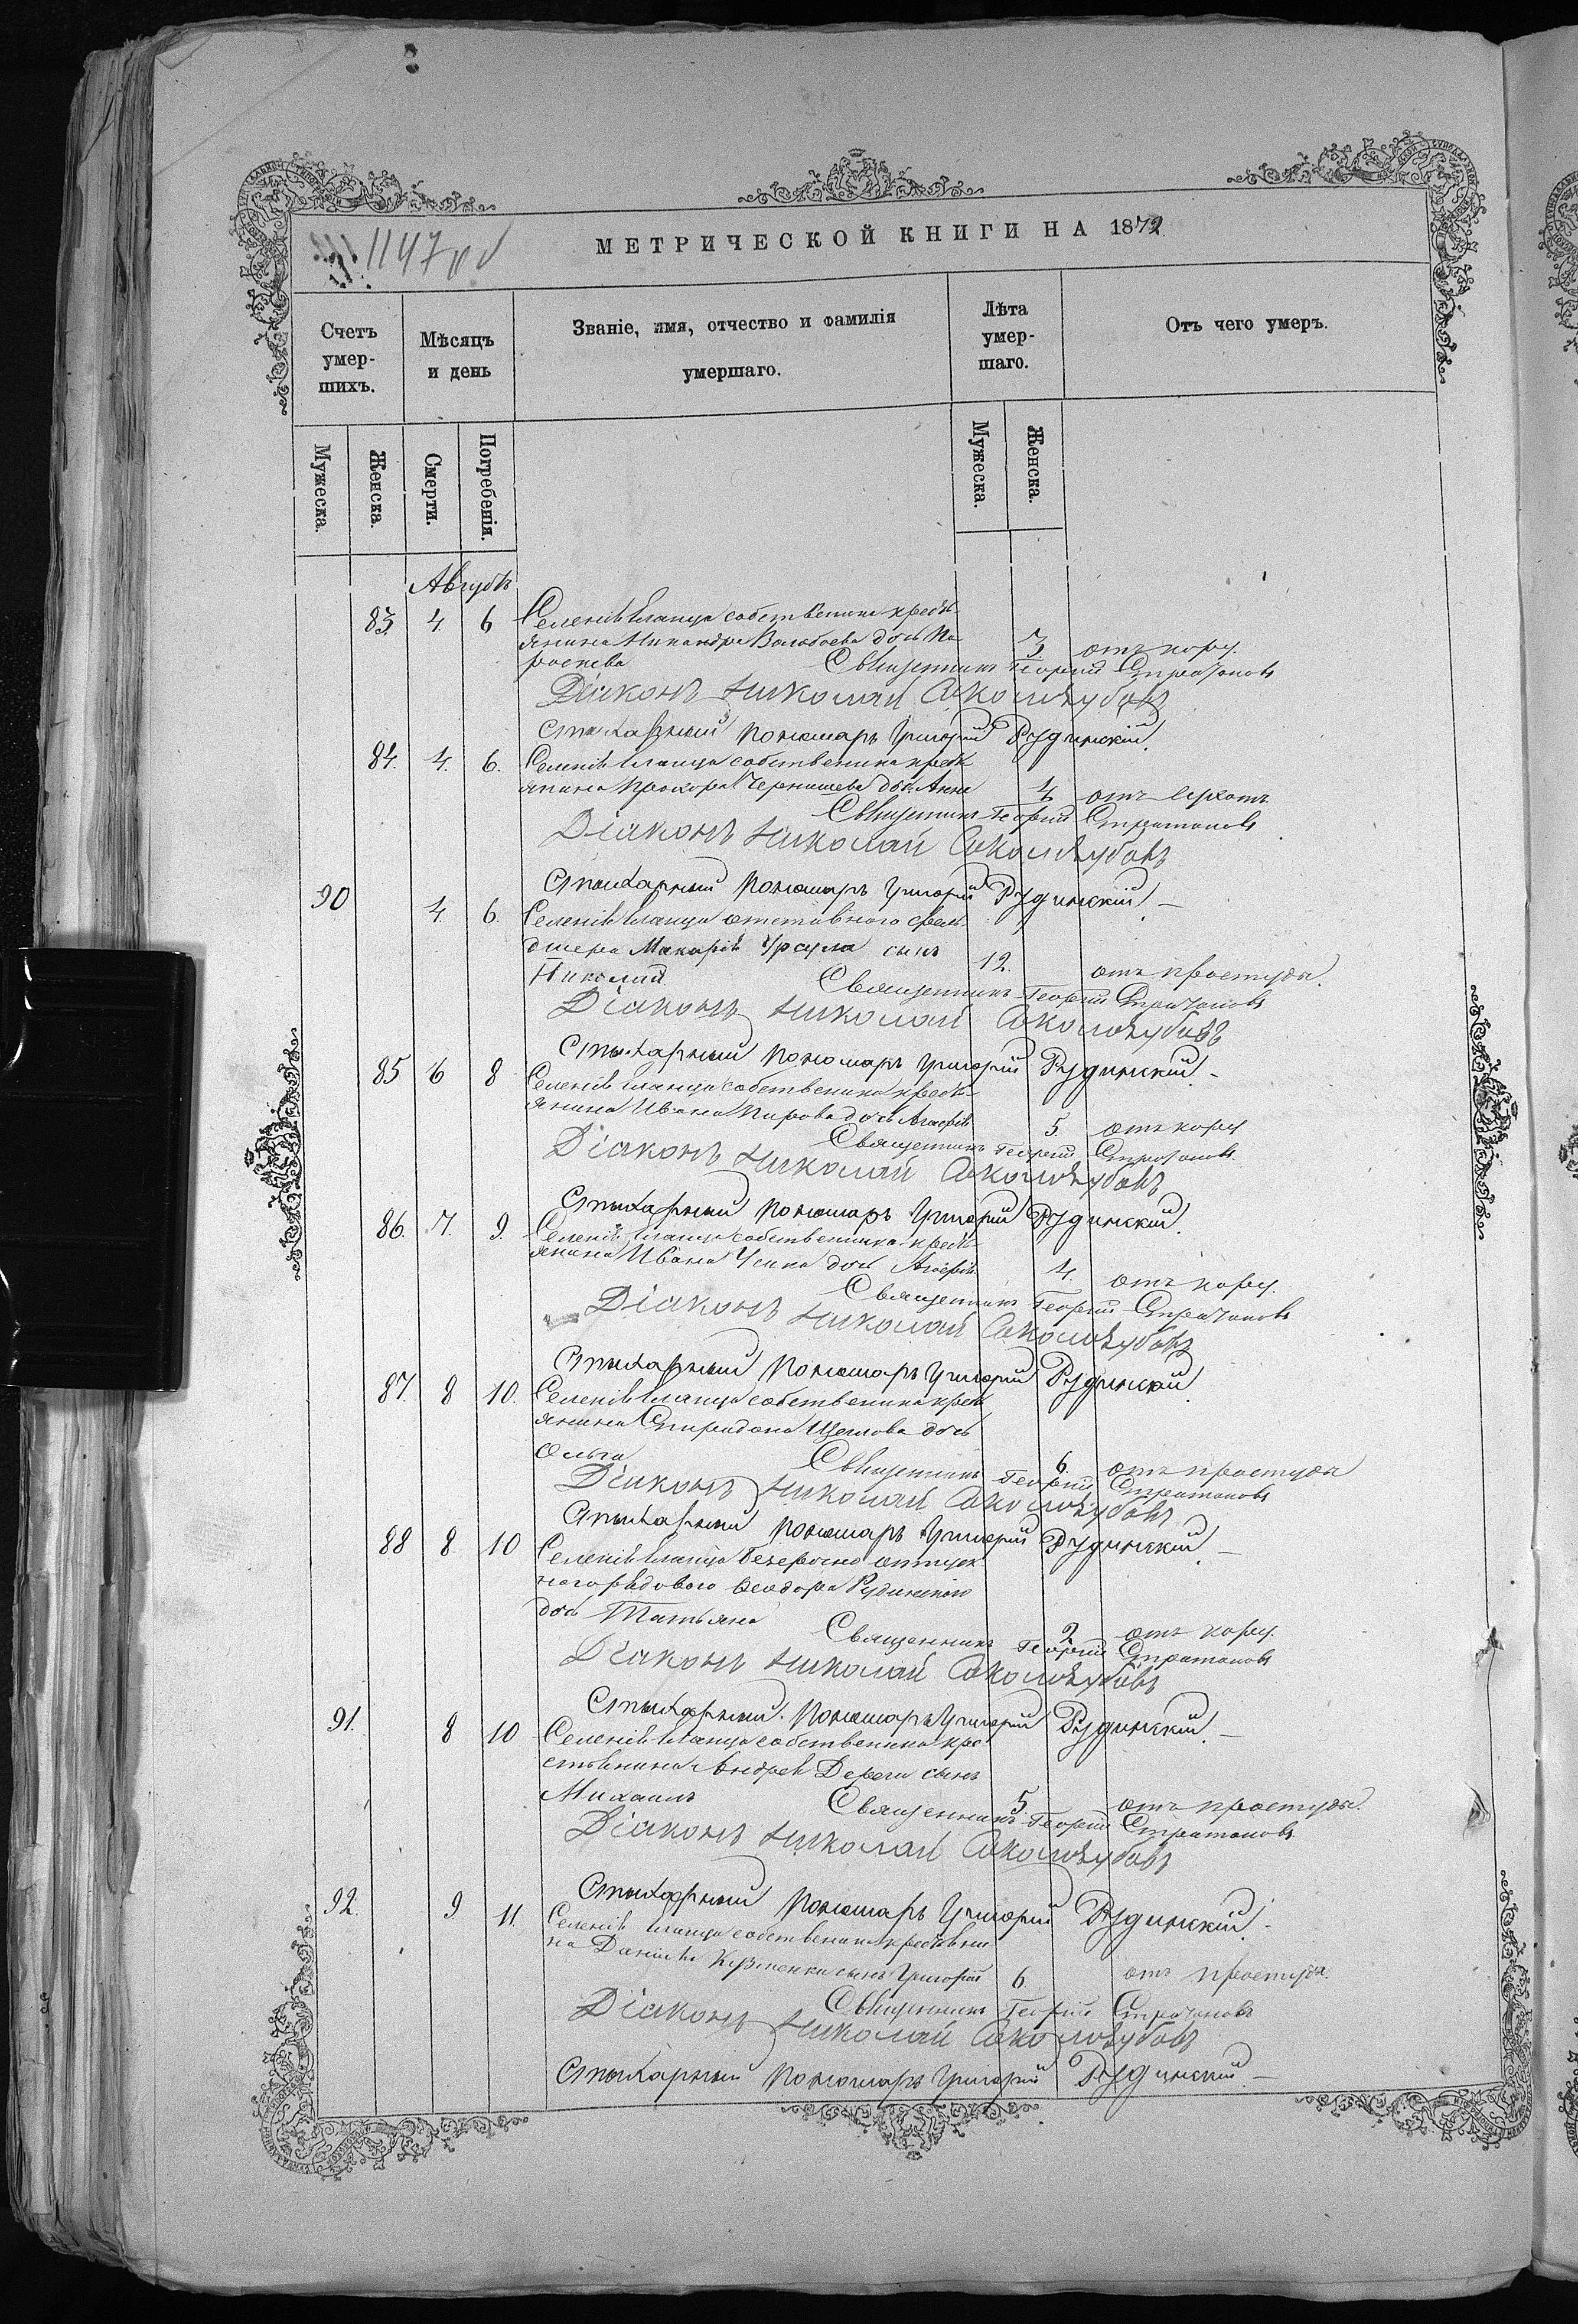 1147 об
МЕТРИЧЕСКОЙ КНИГИ НА 1872
Счетъ умер-шихъ.
Мѣсяцъ и день
Званіе, имя, отчество и фамилія умершаго.
Лѣта умер-шаго.
Отъ чего умеръ.
Мужеска.
Женска.
Смерти.
Погребенія.
Мужеска.
Женска.
Августъ
83. 4. 6 Селенія собственика кресть-
янина Никандра дочь Па-
раскева 3. отъ кору.
Священникъ Георгій Стратоновъ
Діаконъ Николай Сокологубовъ
Стихарный Пономарь Григорій Рудинскій.
84. 4. 6. Селенія собственика крест-
янина Прохора Чернышева доч. Анна 4
Священникъ Георгій Стратоновъ
Діаконъ Николай Сокологубовъ
Стихарный Пономарь Григорій Рудинскій –
90 4. 6. Селенія отставного фель-
дшера Макарія Урсула сынъ 12. отъ простуды.
Николай
Священникъ Георгій Стратоновъ
Діаконъ Николай Сокологубовъ
Стихарный Пономарь Григорій Рудинскій. –
85 6 8 Селенія собственика кресть-
янина Ивана дочь 5. отъ кору
Священникъ Георгій Стратоновъ
Діаконъ Николай Сокологубовъ
Стихарный Пономарь Григорій Рудинскій.
86. 7. 9. Селенія собственика кресть-
янина Ивана дочь 4. отъ кору.
Священникъ Георгій Стратоновъ
Діаконъ Николай Сокологубовъ
Стихарный Пономарь Григорій Рудинскій
87. 8 10. Селенія собственика крест-
янина Спиридона дочь
Ольга 6. отъ простуды
Священникъ Георгій Стратоновъ
Діаконъ Николай Сокологубовъ
Стихарный Пономарь Григорій Рудинскій. –
88 8 10 Селенія безсрочно отпуск-
ного рядового Ѳеодора Рудинского
дочь Татьяна 2 отъ кору.
Священникъ Георгій Стратоновъ
Діаконъ Николай Сокологубовъ
Стихарный Пономарь Григорій Рудинскій. –
91. 8 10 Селенія собственика кре-
стьянина Андрея сынъ
Михаилъ 5. отъ простуды.
Священникъ Георгій Стратоновъ
Діаконъ Николай Сокологубовъ
Стихарный Пономарь Григорій Рудинскій. –
92. 9 11. Селенія собственика крестьяни-
на Даніила сынъ Григорій 6. отъ простуды.
Священникъ Георгій Стратоновъ
Діаконъ Николай Сокологубовъ
Стихарный Пономарь Григорій Рудинскій. –